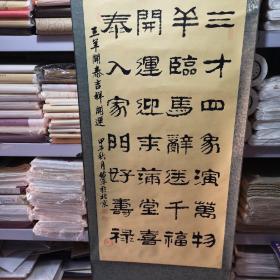 三才四象演萬物
羊臨馬辭送千福
開運迎未滿堂喜
泰入家門好壽祿
三羊開泰吉祥開運
甲午秋月於北京